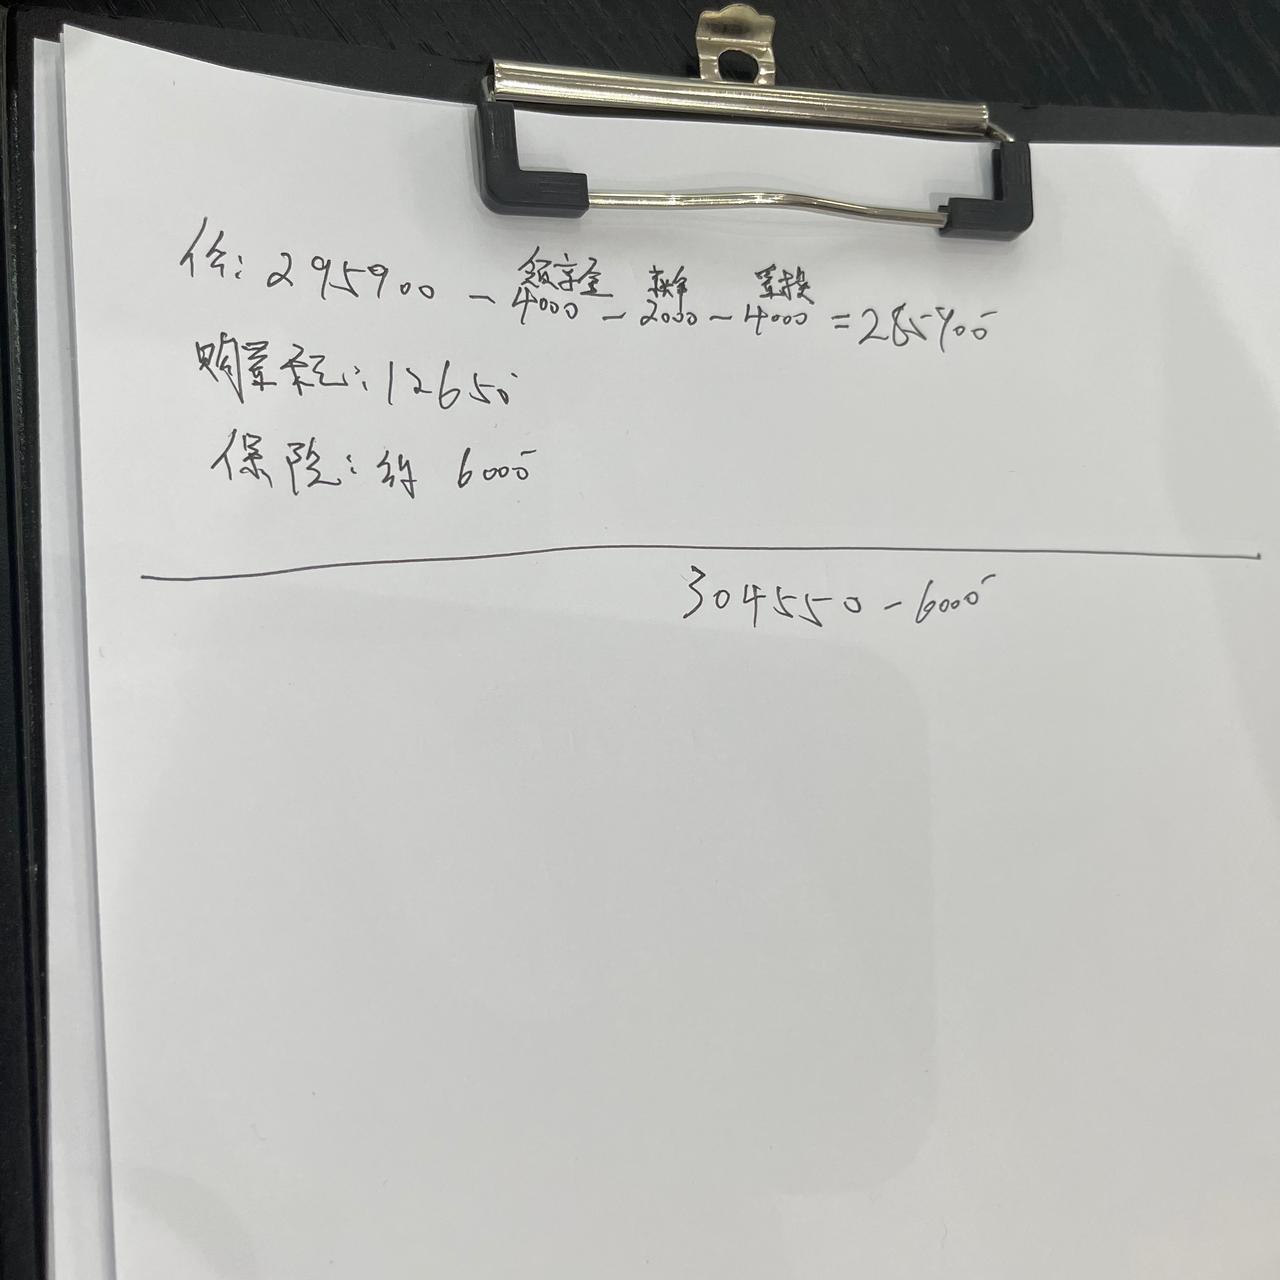 价: 295900 - 颐享金 4000 - 2000 - 置换 4000 = 285900
购置税: 12650
保险: 约 6000
304550 - 6000